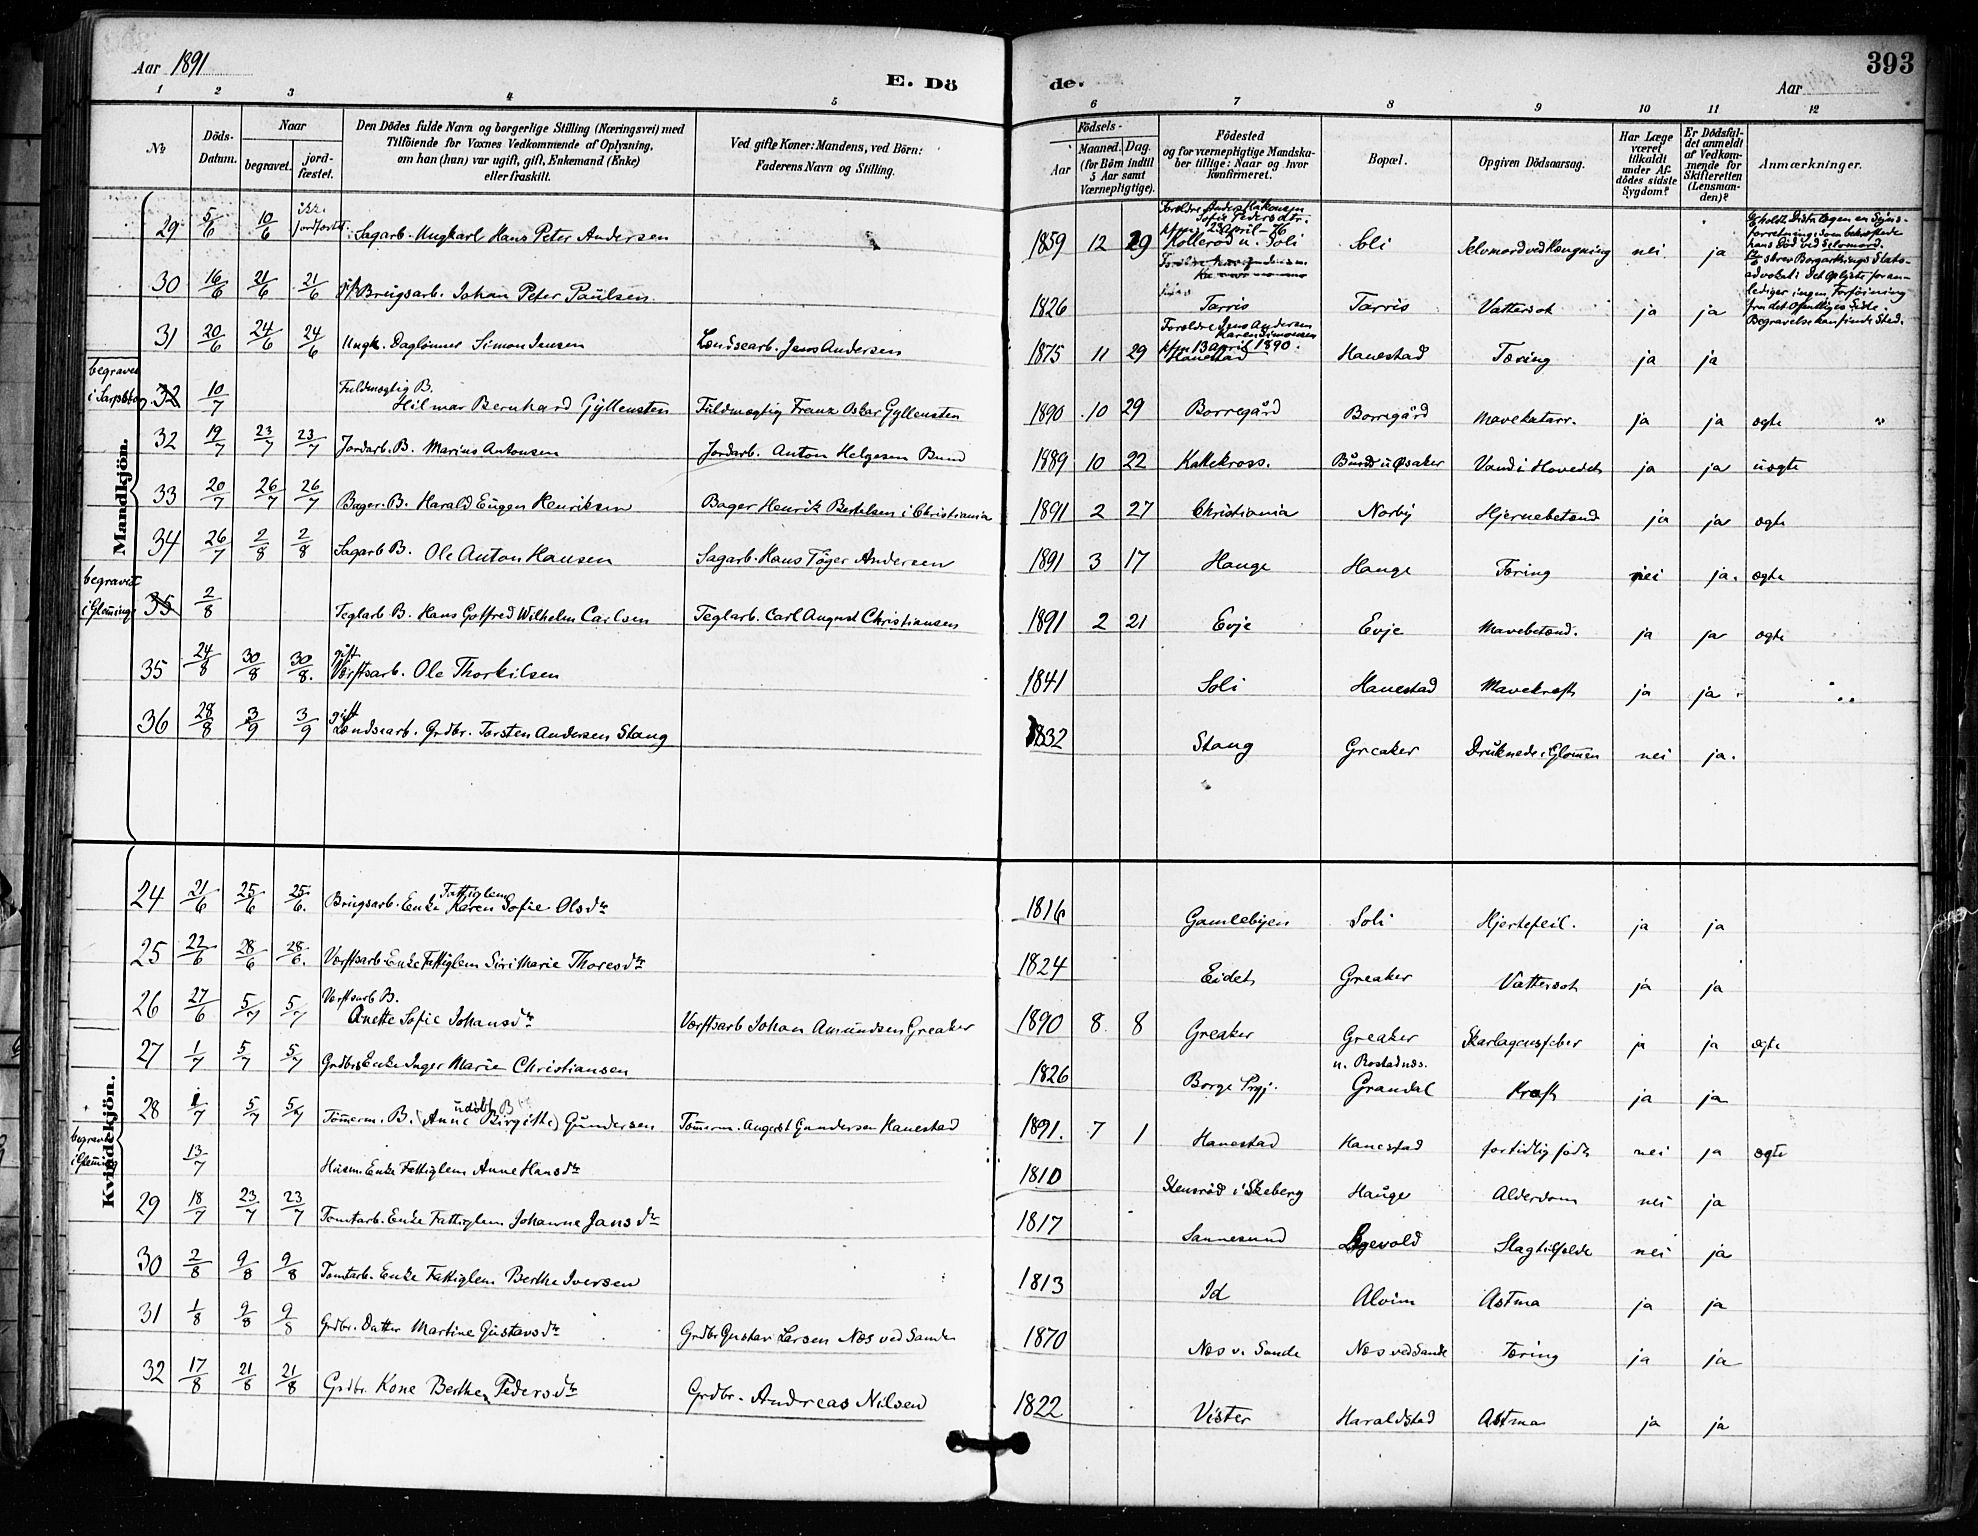 Aar 1891
E. Döde.
Aar
393
1 2 3 4 5 6 7 8 9 10 11 12
№
Döds-Datum.
Naar
begravet.
jord-fæstet.
Den Dödes fulde Navn og borgerlige Stilling (Næringsvei) med
Tilföiende for Voxnes Vedkommende af Oplysning,
om han (hun) var ugift, gift, Enkemand (Enke)
eller fraskilt.
Ved gifte Koner: Mandens, ved Börn:
Faderens Navn og Stilling.
Födsels-
Aar
Maaned. Dag.
(for Börn indtil
5 Aar samt
Værnepligtige).
Födested
og for værnepligtige Mandska-
ber tillige: Naar og hvor
konfirmeret.
Bopæl.
Opgiven Dödsaarsag.
Har Læge
været
tilkaldt
under Af-
dödes sidste
Sygdom?
Er Dödsfal-
det anmeldt
af Vedkom-
mende for
Skifteretten
(Lensman-
den)?
Anmærkninger.
Mandkjön.
29 5/6 10/6 ikke jordfæstet Sagarb. Ungkarl Hans Peter Andersen 1859 12 29 Forældre Anders Håkonsen Sofie Pedersdtr. kfm. 23 April-76 Kolleröd u. Soli Soli Selvmord ved Hængning nei ja
30 16/6 21/6 21/6 gift Brugsarb. Johan Peter Paulsen 1826 Tarris Tarris Vattersot ja ja
31 20/6 24/6 24/6 Ungk. Daglönner Simon Jensen Lændsearb. Jens Andersen 1875 11 29 Forældre Jens Andersen Karen Simonsen kfm 13 April 1890. Hanestad Hanestad Tæring ja ja
begravet i Sarpsborg 32 10/7 Fuldmægtig B. Hilmar Bernhard Gyllensten Fuldmægtig Franz Oskar Gyllensten 1890 10 29 Borregård Borregård Mavekatarr. ja ja ægte
32 19/7 23/7 23/7 Jordarb. B. Marius Antonsen Jordarb. Anton Helgesen 1889 10 22 Kattekross. u Øsaker Vand i Hovedet ja ja uægte
33 20/7 26/7 26/7 Bager. B. Harald Eugen Henriksen Bager Henrik Bertelsen i Christiania 1891 2 27 Christiania Norby Hjernebetænd ja ja ægte
34 26/7 2/8 2/8 Sagarb B. Ole Anton Hansen Sagarb. Hans Töger Andersen 1891 3 17 Hauge Hauge Tæring nei ja. ægte
begravet i Glemminge 35 2/8 Teglarb. B. Hans Gotfred Wilhelm Carlsen Teglarb. Carl August Christiansen 1891 2 21 Evje Evje Mavebetænd. ja ja ægte
35 24/8 30/8 30/8. gift Værftsarb. Ole Thorkilsen 1841 Soli Hanestad Mavekræft ja ja
36 28/8 3/9 3/9 gift Lændsearb. Grdbr. Torsten Andersen Stang 1832 Stang Greaker Druknede i Glommen nei ja.
Erholdt Distr. lægen en Syns-
forretning, som bekræftede
hans Död ved Selvmord.
skrev Borgarthings Stats-
advokat: Det oplyste foran-
lediger ingen Forföining
fra det Offentliges Side.
Begravelse kan finde Sted.
Kvindekjön.
24 21/6 25/6 25/6. Brugsarb. Enke Fattiglem Karen Sofie Olsdtr 1816 Gamlebyen Soli Hjertefeil. ja ja
25 22/6 28/6 28/6. Værftsarb Enke Fattiglem Siri Marie Thoresdtr 1824 Eidet Greaker Vattersot ja ja
26 27/6 5/7 5/7 Værftsarb B. Anette Sofie Johansdtr Værftsarb Johan Amundsen Greaker 1890 8 8 Greaker Greaker Skarlagensfeber ja ja ægte
27 1/7 5/7 5/7 Grdbrs Enke Inger Marie Christiansen 1826 Borge Prgj. u. Rostadnæs. Grandal Kræft ja ja
28 1/7 5/7 5/7 Tömmerm. B. (Anne Birgithe) udöbt B Gundersen Tömmerm. August Gundersen Hanestad 1891. 7 1 Hanestad Hanestad fortidlig födt nei ja ægte
begravet i Glemminge 13/7 Husm. Enke Fattiglem Anne Hansdtr 1810 Stensröd i Skeberg Hauge Alderdom nei ja
29 18/7 23/7 23/7 Tomtarb. Enke Fattiglem Johanne Jansdtr 1817 Sannesund Slagtilfælde nei ja
30 2/8 9/8 9/8 Tomtarb. Enke Fattiglem Berthe Iversen 1813 Id Alvim Astma ja ja
31 1/8 9/8 9/8 Grdbr. Datter Martine Gustavsdtr Grdbr Gustav Larsen Næs ved Sande 1870 Næs v. Sande Næs ved Sande Tæring ja ja
32 17/8 21/8 21/8 Grdbr. Kone Berthe Pedersdtr Grdbr. Andreas Nilsen 1822 Vister Haraldstad Astma ja ja